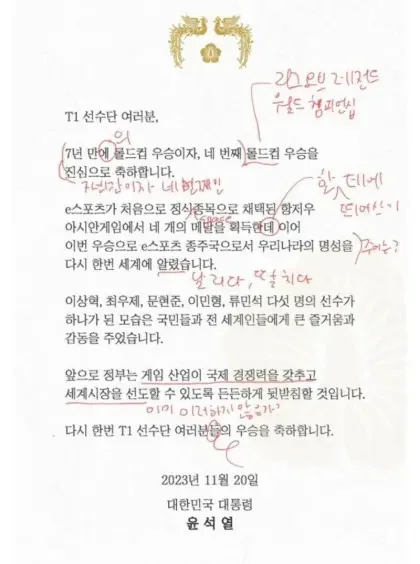 리그오브 레전드
월드 챔피언십
T1 선수단 여러분,
의
7년 만에 롤드컵 우승이자, 네 번째 롤드컵 우승을
진심으로 축하합니다.
7년만이자 네번째인
한 데에
띄어쓰기
e스포츠가 처음으로 정식종목으로 채택된 항저우
space
아시안게임에서 네 개의 메달을 획득한데 이어
이번 우승으로 e스포츠 종주국으로서 우리나라의 명성을
주어는?
다시 한번 세계에 알렸습니다.
날리다, 떨치다
이상혁, 최우제, 문현준, 이민형, 류민석 다섯 명의 선수가
하나가 된 모습은 국민들과 전 세계인들에게 큰 즐거움과
감동을 주었습니다.
앞으로 정부는 게임 산업이 국제 경쟁력을 갖추고
세계시장을 선도할 수 있도록 든든하게 뒷받침할 것입니다.
이미 이러하지 않은가?
다시 한번 T1 선수단 여러분들의 우승을 축하합니다.
2023년 11월 20일
대한민국 대통령
윤석열